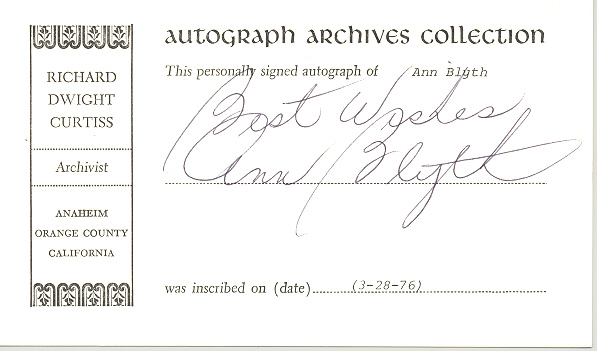 autograph archives collection
RICHARD
DWIGHT
CURTISS
Archivist
ANAHEIM
ORANGE COUNTY
CALIFORNIA
This personally signed autograph of Ann Blyth
Best Wishes
Ann Blyth
was inscribed on (date) (3-28-76)